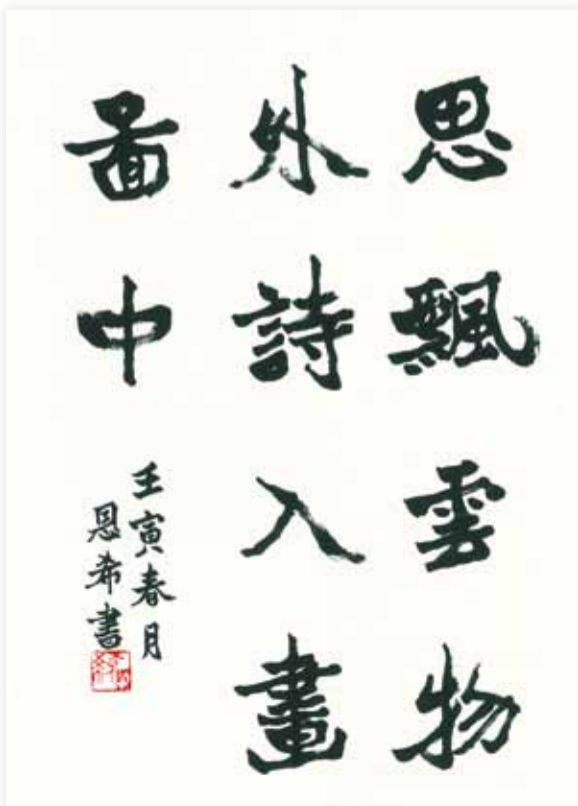 思飄雲物
外詩入畫
啚中
壬寅春月
恩希書